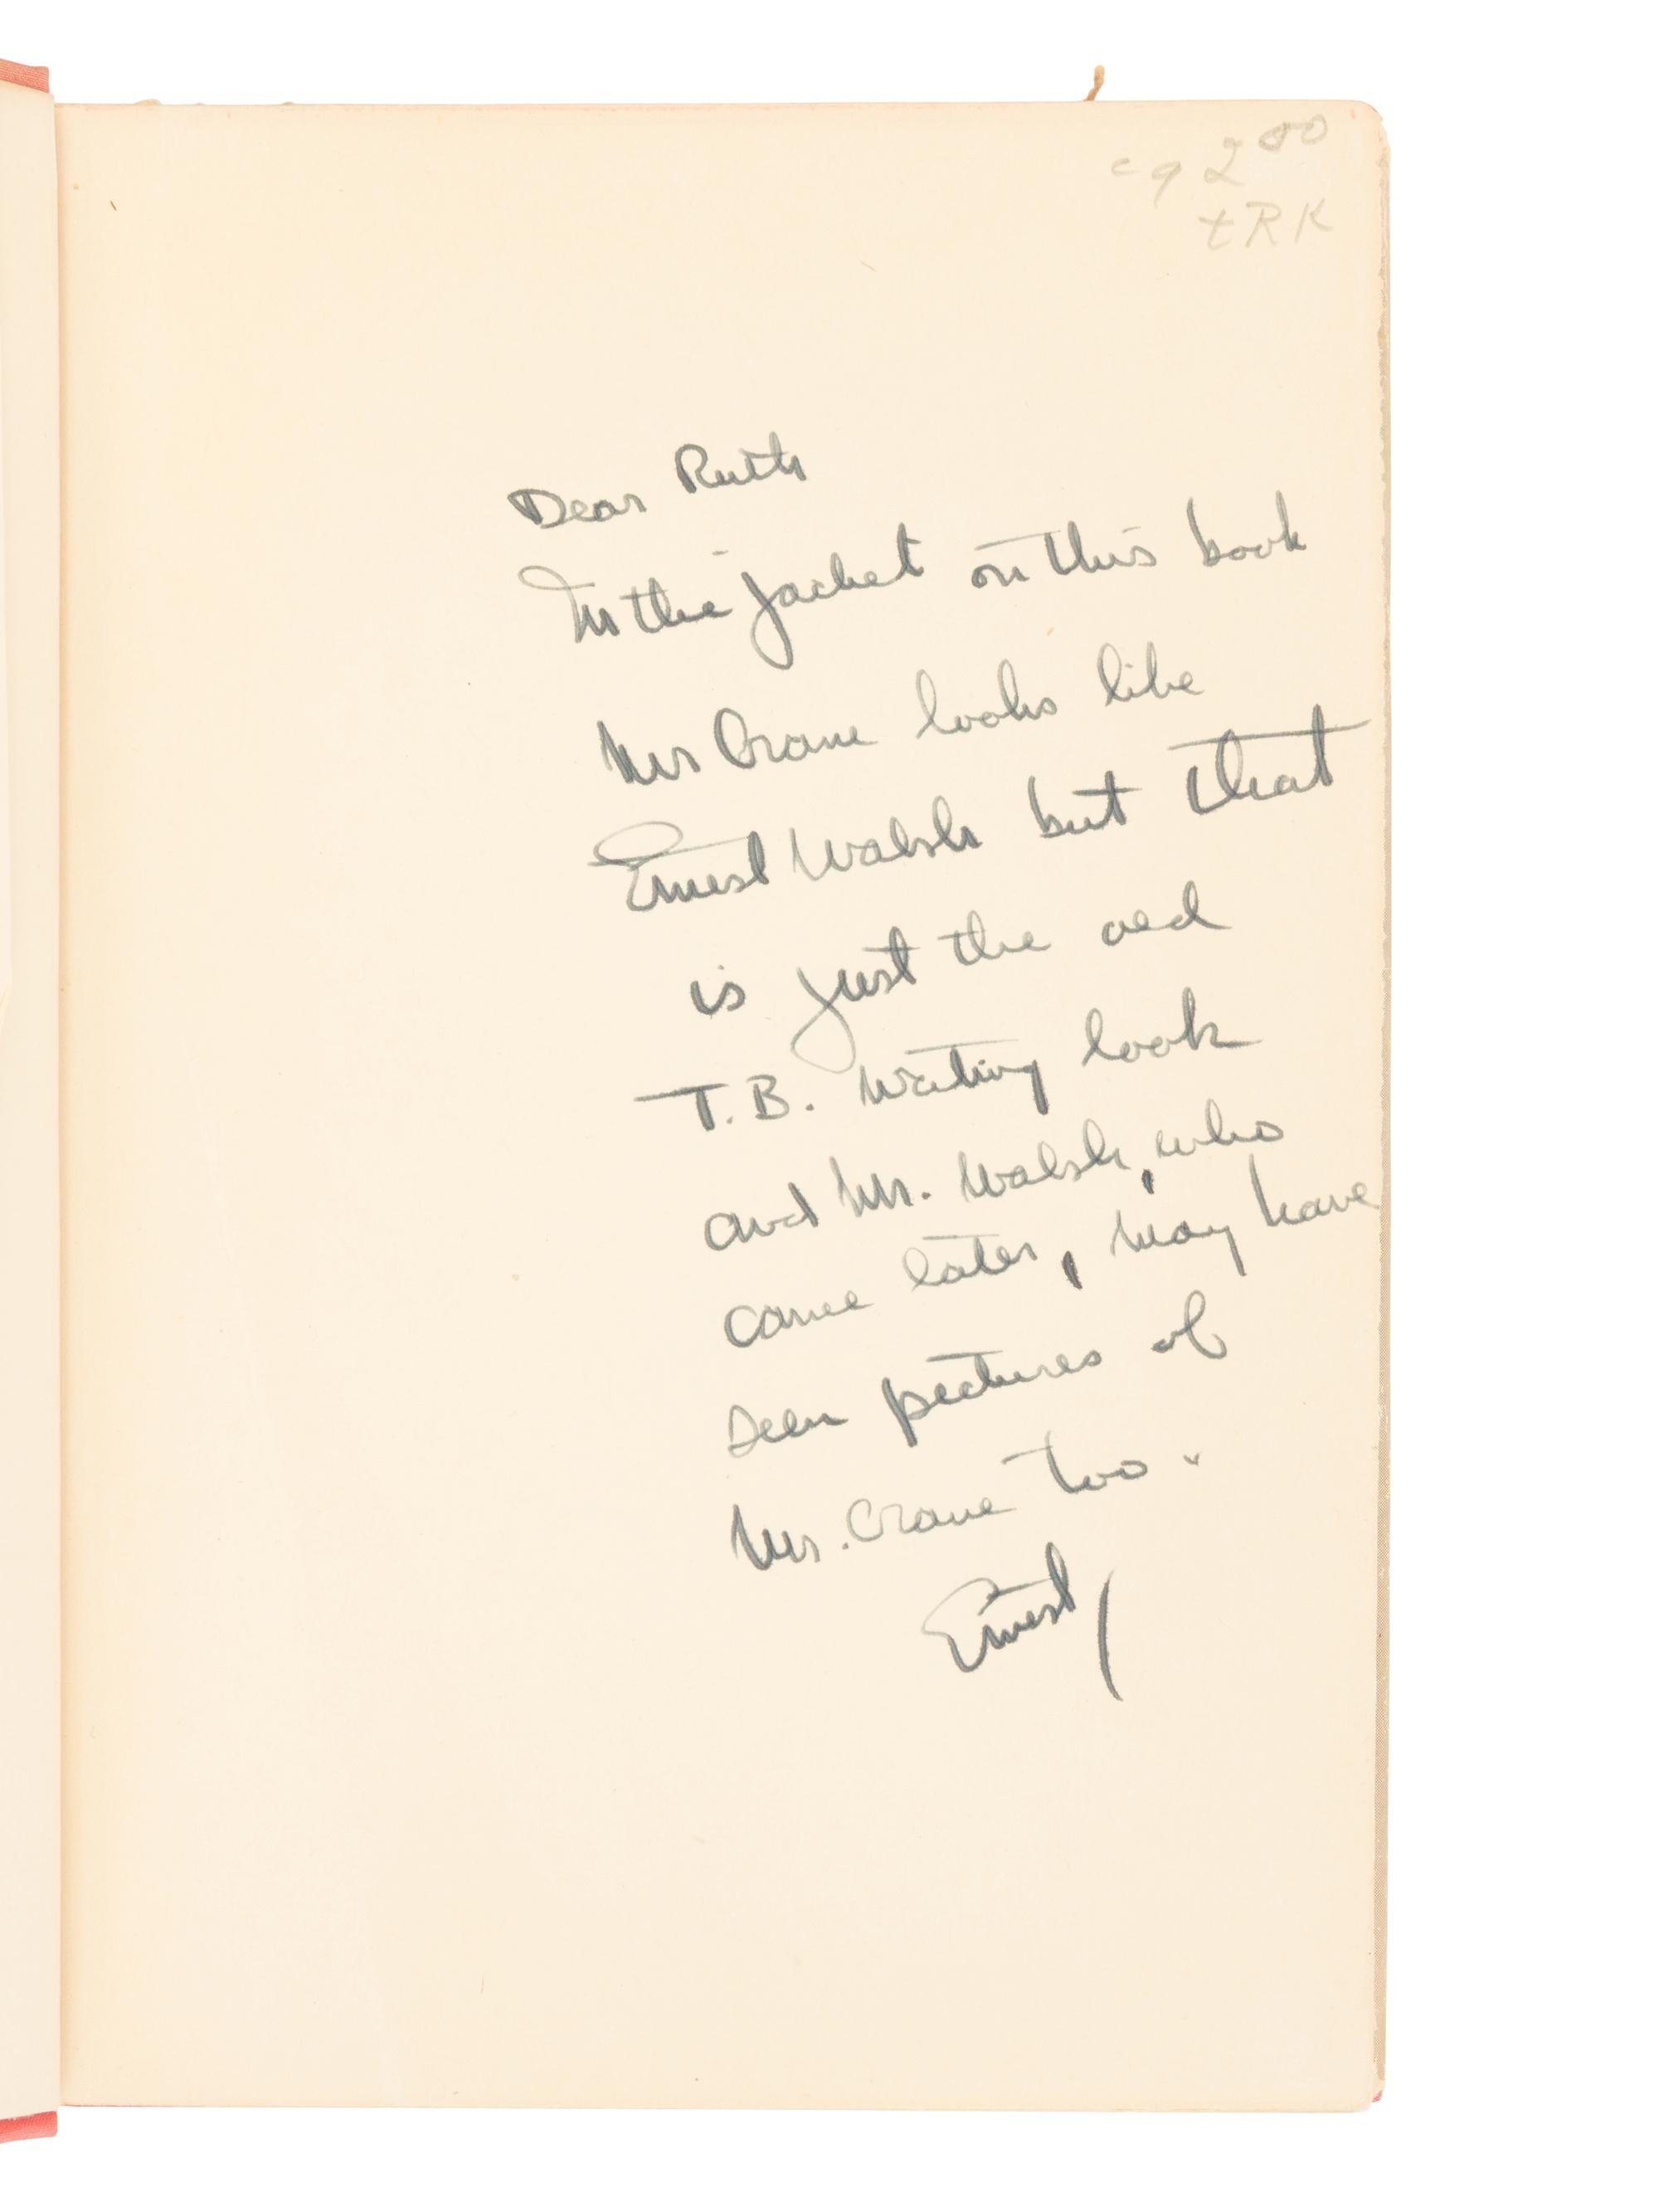 cg 2 00
tRK
Dear Ruth
In the jacket on this book
Mr Crane looks like
Ernest Walsh but that
is just the old
T.B. waiting look
and Mr. Walsh, who
came later, may have
seen pictures of
Mr. Crane too.
Ernest